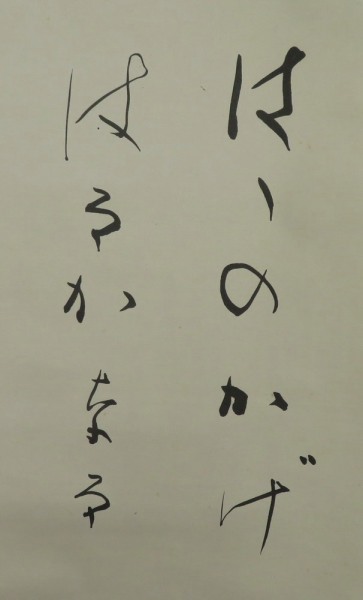 はゝのかげ
はるかなる